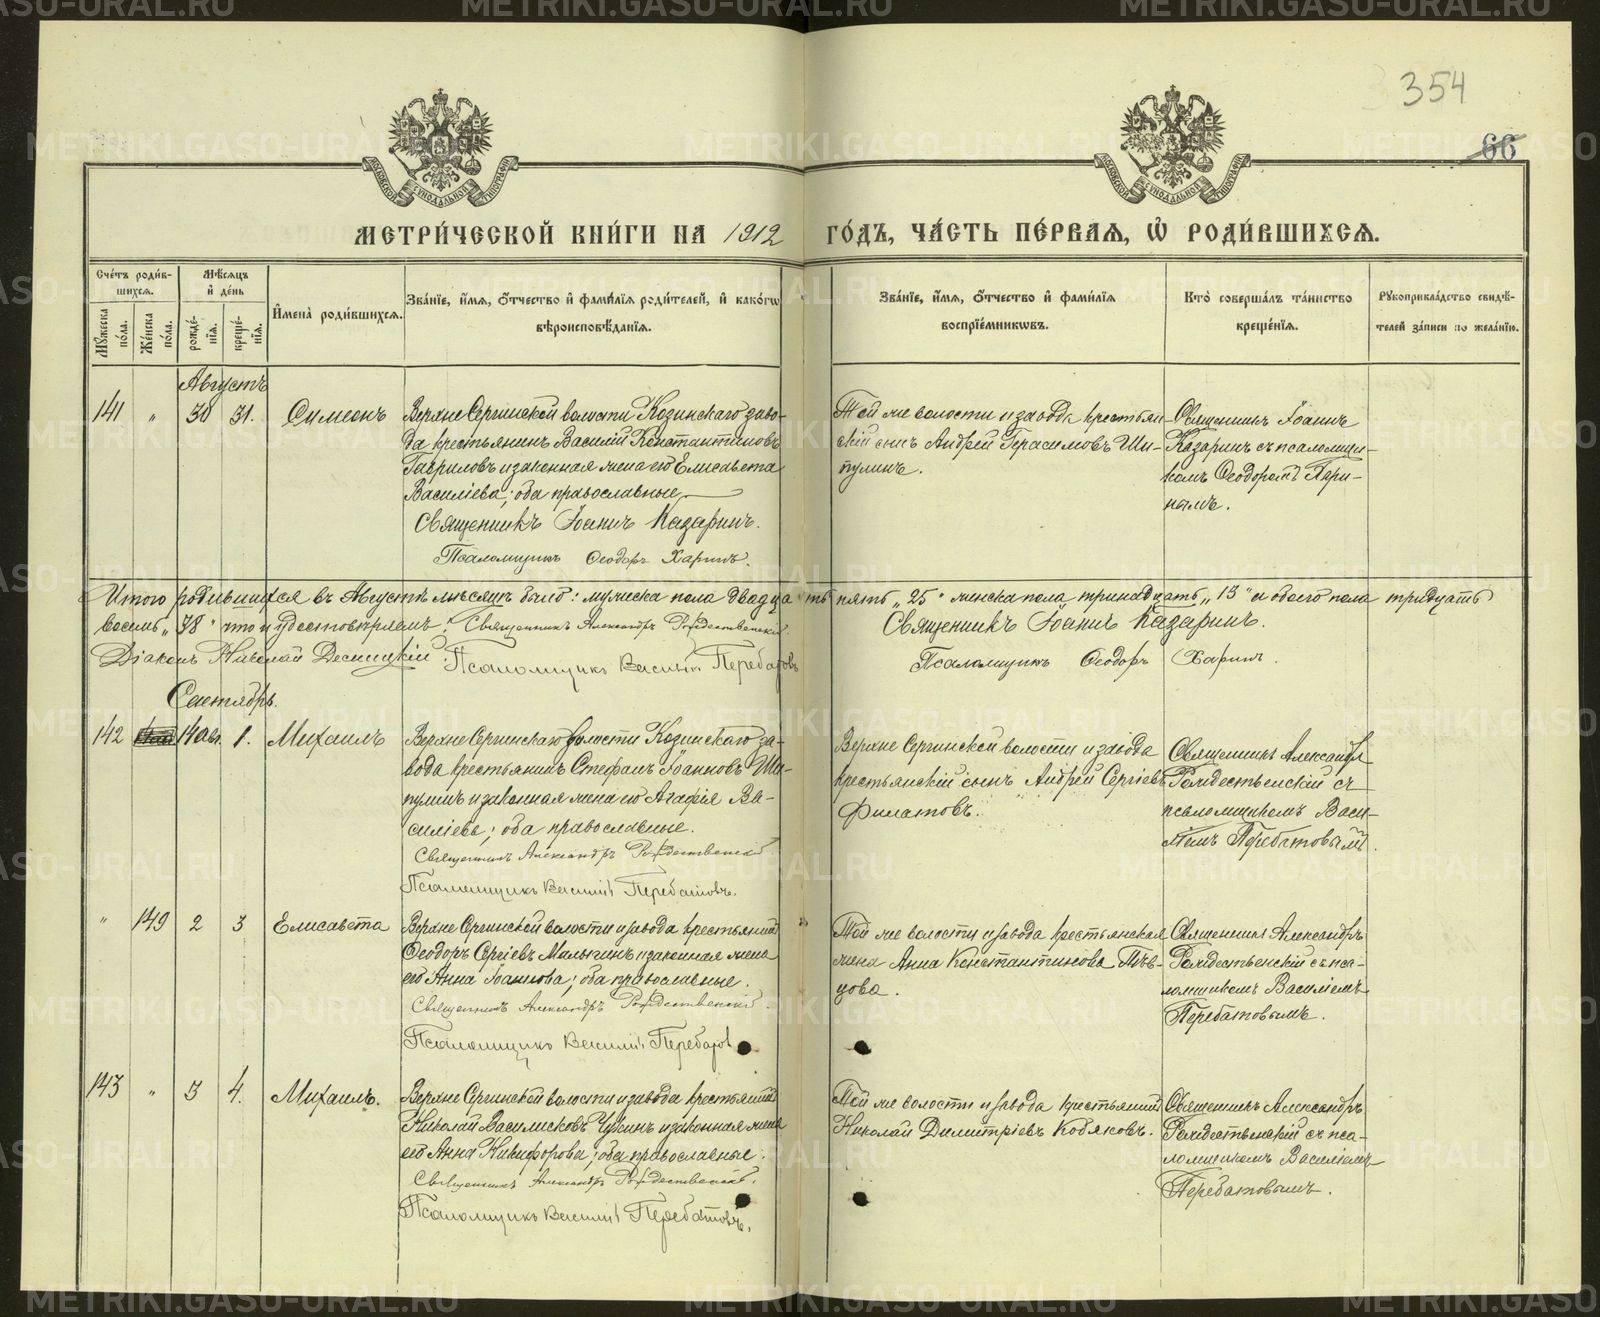 METRIKI.GASO-URAL.RU
354
66
МОСКОВСКОЙ СѴНОДАЛЬНОЙ ТИПОГРАФІИ
МОСКОВСКОЙ СѴНОДАЛЬНОЙ ТИПОГРАФІИ
МЕТРИ́ЧЕСКОЙ КНИ́ГИ НА 1912 ГО́ДЪ, ЧА́СТЬ ПЕ́РВАЯ, Ѡ РОДИ́ВШИХСЯ.
Сче́тъ роди́в-
шихся.
Мѣ́сяцъ
и҆ де́нь
Мꙋ́жеска по́ла.
Же́нска по́ла.
рожде́-
нїѧ.
креще́-
нїѧ.
И҆мена̀ роди́вшихся.
Зва́нїе, и҆́мя, ѻ҆́тчество и҆ фами́лїя роди́телей, и҆ како́гѡ
вѣроисповѣ́данїя.
Зва́нїе, и҆́мя, ѻ҆́тчество и҆ фами́лїя
воспрїе́мникѡвъ.
Кто̀ соверша́лъ та́инство
креще́нїя.
Рꙋкоприкла́дство свидѣ́-
телей за́писи по жела́нїю.
Августъ
141 " 30 31. Симеонъ
Верхне Сергинской волости Козинскаго заво-
да крестьянинъ Василій Константиновъ
Гавриловъ и законная жена его Елисавета
Василіева; оба православные
Священникъ Іоаннъ Казаринъ.
Псаломщикъ Ѳеодоръ Харинъ.
Той же волости и завода крестьян-
скій сынъ Андрей Герасимовъ Ши-
пулинъ.
Священникъ Іоаннъ
Казаринъ съ псаломщи-
комъ Ѳеодоромъ Хари-
нымъ.
Итого родившихся въ Августѣ мѣсяцѣ было: мужеска пола двадцать пять „25" женска пола тринадцать „13" и обоего пола тридцать
восемь „38" что и удостовѣряемъ. Священникъ Александръ Рождественскій. Священникъ Іоаннъ Казаринъ.
Діаконъ Николай Десницкій. Псаломщикъ Василій Перебатовъ Псаломщикъ Ѳеодоръ Харинъ.
Сентябрь.
142 14 авг. 1. Михаилъ
Верхне Сергинскаго волости Козинскаго за-
вода крестьянинъ Стефанъ Іоанновъ Ши-
пулинъ и законная жена его Агафія Ва-
силіева; оба православные.
Священникъ Александръ Рождественскій
Псаломщикъ Василій Перебатовъ.
Верхне Сергинской волости и завода
крестьянскій сынъ Андрей Сергіевъ
Филатовъ.
Священникъ Александръ
Рождественскій съ
псаломщикомъ Васи-
ліемъ Перебатовымъ.
" 149 2 3 Елисавета
Верхне Сергинской волости и завода крестьянинъ
Ѳеодоръ Сергіевъ Малыгинъ и законная жена
его Анна Іоаннова; оба православные.
Священникъ Александръ Рождественскій.
Псаломщикъ Василій Перебатов
Той же волости и завода крестьянская
жена Анна Константинова Пѣв-
цова.
Священникъ Александръ
Рождественскій съ пса-
ломщикомъ Василіемъ
Перебатовымъ.
143 " 3 4. Михаилъ.
Верхне Сергинской волости и завода крестьянинъ
Николай Василисковъ и законная жена
его Анна Никифорова; оба православные.
Священникъ Александръ Рождественскій.
Псаломщикъ Василій Перебатовъ.
Той же волости и завода крестьянинъ
Николай Димитріевъ Кобяковъ.
Священникъ Александръ
Рождественскій съ пса-
ломщикомъ Василіемъ
Перебатовымъ.